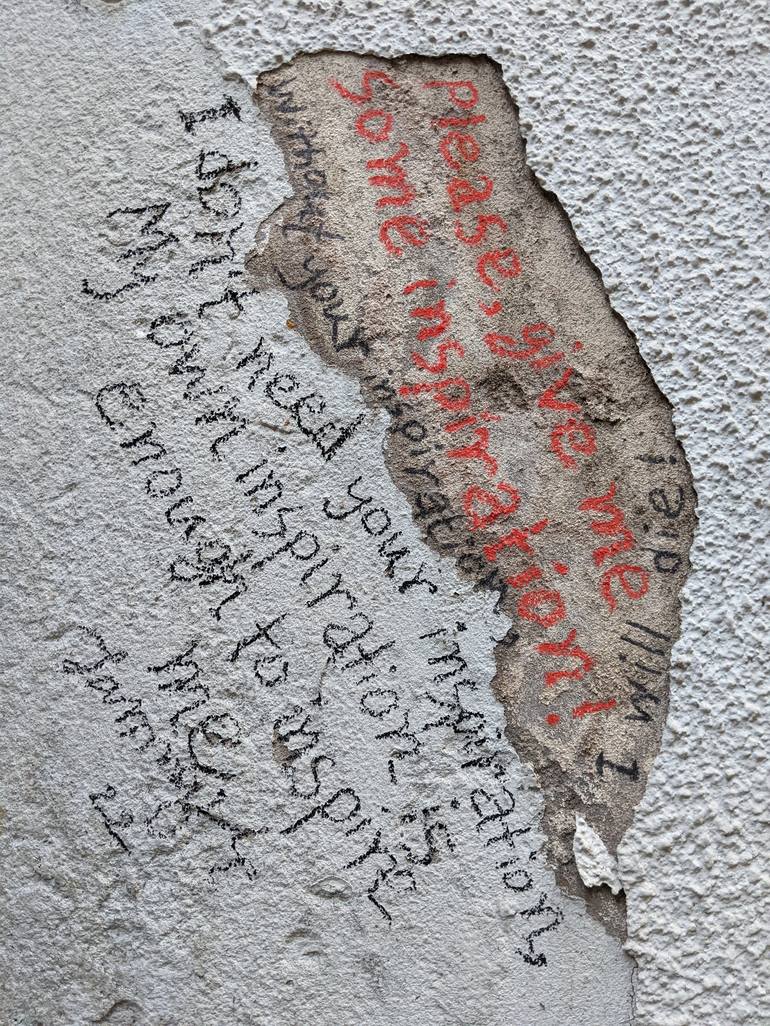 please, give me
some inspiration!
without your inspiration,
I will die!
I don't need your inspiration
My own inspiration is
Enough to inspire
me